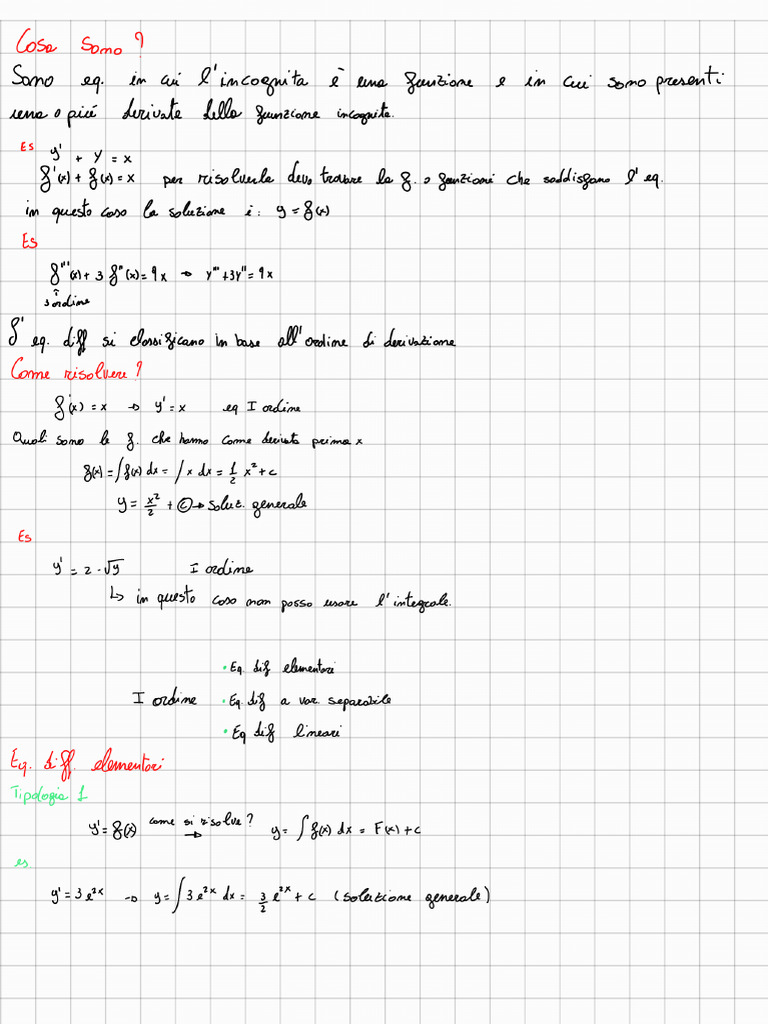 Cosa sono?
Sono eq. in cui l'incognita è una funzione e in cui sono presenti
una o più derivate della funzione incognita.
Es
y' + y = x
f'(x) + f(x) = x per risolverla devo trovare la f. o funzioni che soddisfano l'eq.
in questo caso la soluzione è: y = f(x)
Es
f'''(x) + 3 f''(x) = 9x → y''' + 3y'' = 9x
3 ordine
L' eq. diff si classificano in base all'ordine di derivazione
Come risolvere?
f'(x) = x → y' = x eq I ordine
Quali sono le f. che hanno come derivata prima x
f(x) = ∫f(x) dx = ∫x dx = 1/2 x² + c
y = x²/2 + c → soluz. generale
Es
y' = 2 · √y I ordine
↳ in questo caso non posso usare l'integrale.
• Eq. dif elementari
I ordine • Eq. dif a var. separabile
• Eq dif lineari
Eq. diff. elementari
Tipologia 1
y' = f(x) come si risolve? → y = ∫f(x) dx = F(x) + c
es.
y' = 3e^2x → y = ∫3e^2x dx = 3/2 e^2x + c (soluzione generale)